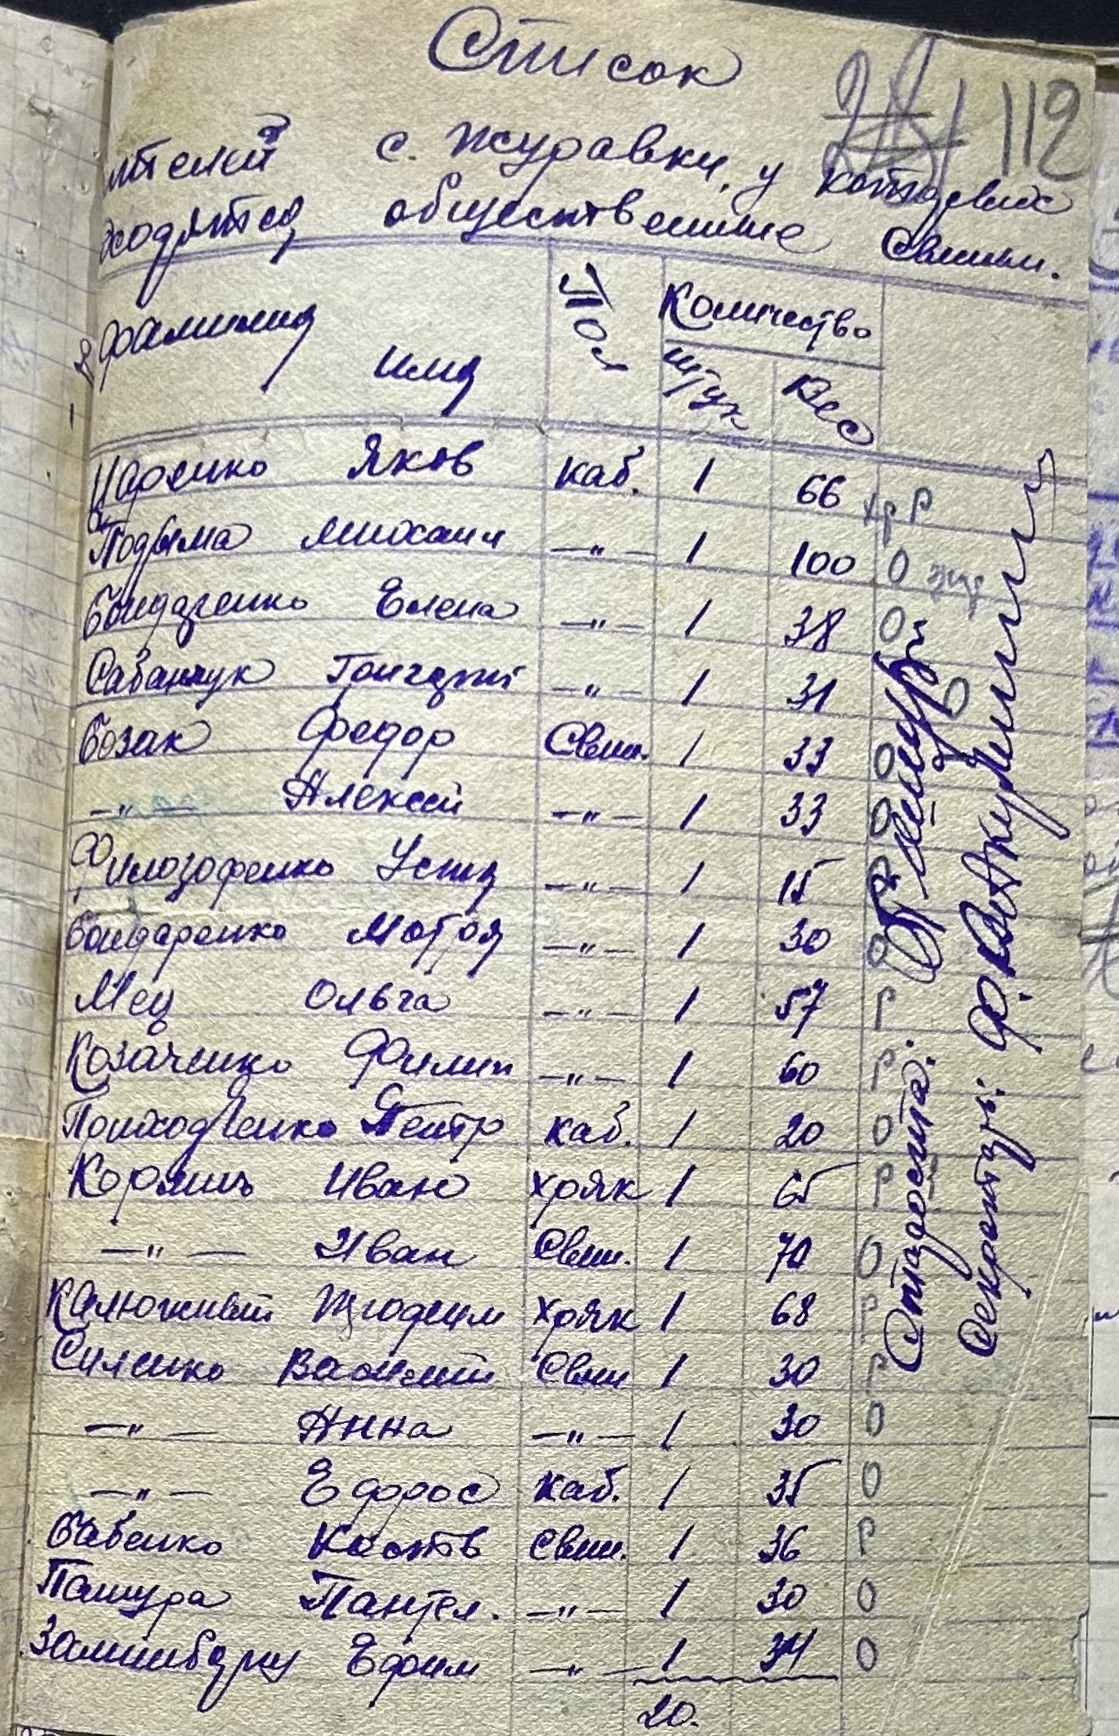 Список
112
ителей с. Журавки, у которых
ходятся общественные свиньи.
Фамилия имя Пол Количество
штук Вес
Царенко Яков каб. 1 66 хр Р
Подыма Михаил —"— 1 100 О
Бондаренко Елена —"— 1 38 О
Сабанчук Григорий —"— 1 31
Козак Федор Свин. 1 33 О
—"— Алексей —"— 1 33 О
Филозофенко Устя —"— 1 15 Р
Бондаренко Мотря —"— 1 30 О
Мец Ольга —"— 1 57 Р
Козаченко Филип —"— 1 60 Р
Приходченко Петр каб. 1 20 О
Корниць Иван хряк 1 65 Р
—"— Иван Свин. 1 70 О
Калюжный Трофим хряк 1 68 Р
Силенко Василий Свин 1 30 Р
—"— Анна —"— 1 30 О
—"— Едорос каб. 1 35 О
Бабенко Свин. 1 36 Р
Пашура Пантел. —"— 1 30 О
Ефим —"— 1 34 О
20.
Староста:
Секретарь: